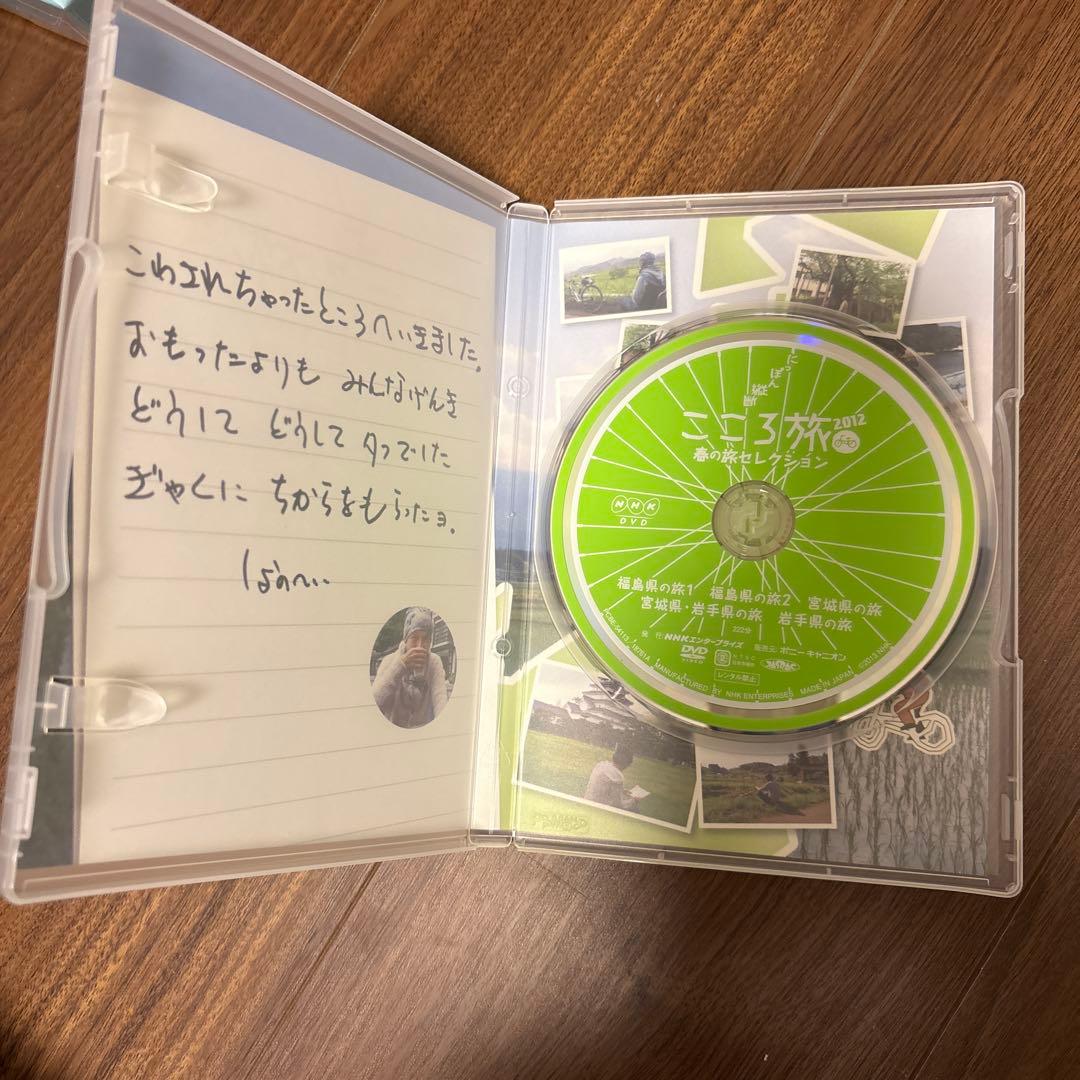 こわされちゃったところへいきました。
おもったよりも みんなげんき
どうして どうして タフでした
ぎゃくに ちからをもらったヨ。
にっぽん縦断
こころ旅2012
春の旅セレクション
NHK
DVD
福島県の旅1 福島県の旅2 宮城県の旅
宮城県・岩手県の旅 岩手県の旅
222分
発 行:NHKエンタープライズ 販売元:ポニーキャニオン
DVD
VIDEO
NTSC
日本市場向
JASRAC
レンタル禁止
MANUFACTURED BY NHK ENTERPRISES MADE IN JAPAN ©2013 NHK